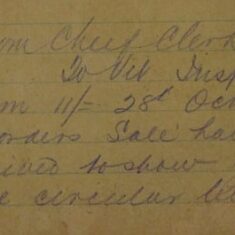 om Chief Clerk
To Vet Insp
m 11/- 28d Oc
orders Sale ha
ived to show
e circular